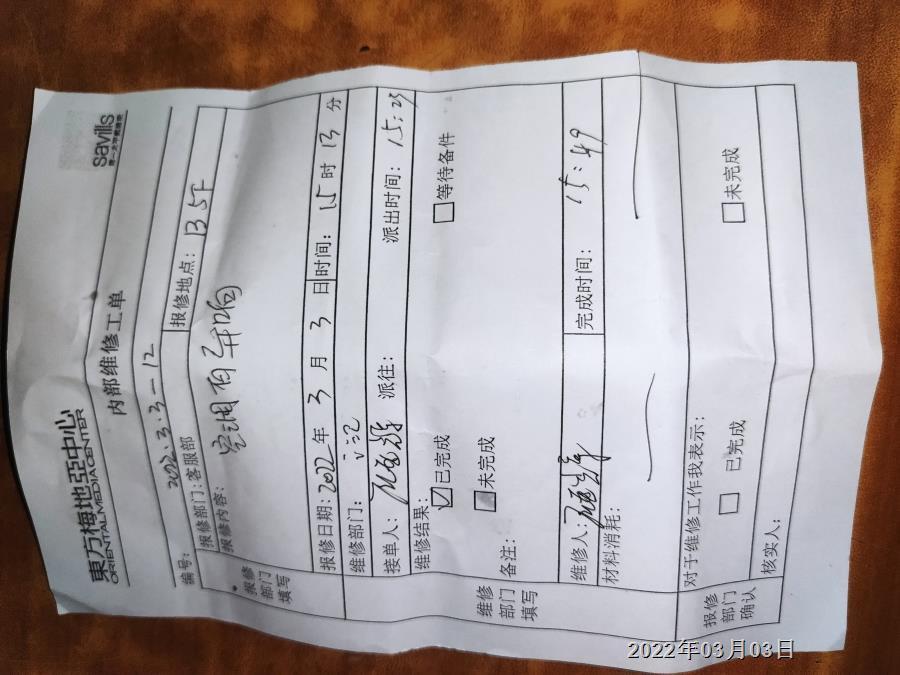 東方梅地亞中心
ORIENTAL MEDIA CENTER
savills
第一太平戴维斯
内部维修工单
编号: 2022.3.3-12
报修部门填写
报修部门:客服部 报修地点: B5F
报修内容: 空调有异响
报修日期: 2022 年 3 月 3 日 时间: 15 时 13 分
维修部门填写
维修部门:
接单人: 派往: 派出时间: 15:23
维修结果: ☑已完成 □等待备件
□未完成
备注:
维修人: 完成时间: 15:49
材料消耗:
报修部门确认
对于维修工作我表示:
□ 已完成 □未完成
核实人:
2022年03月03日